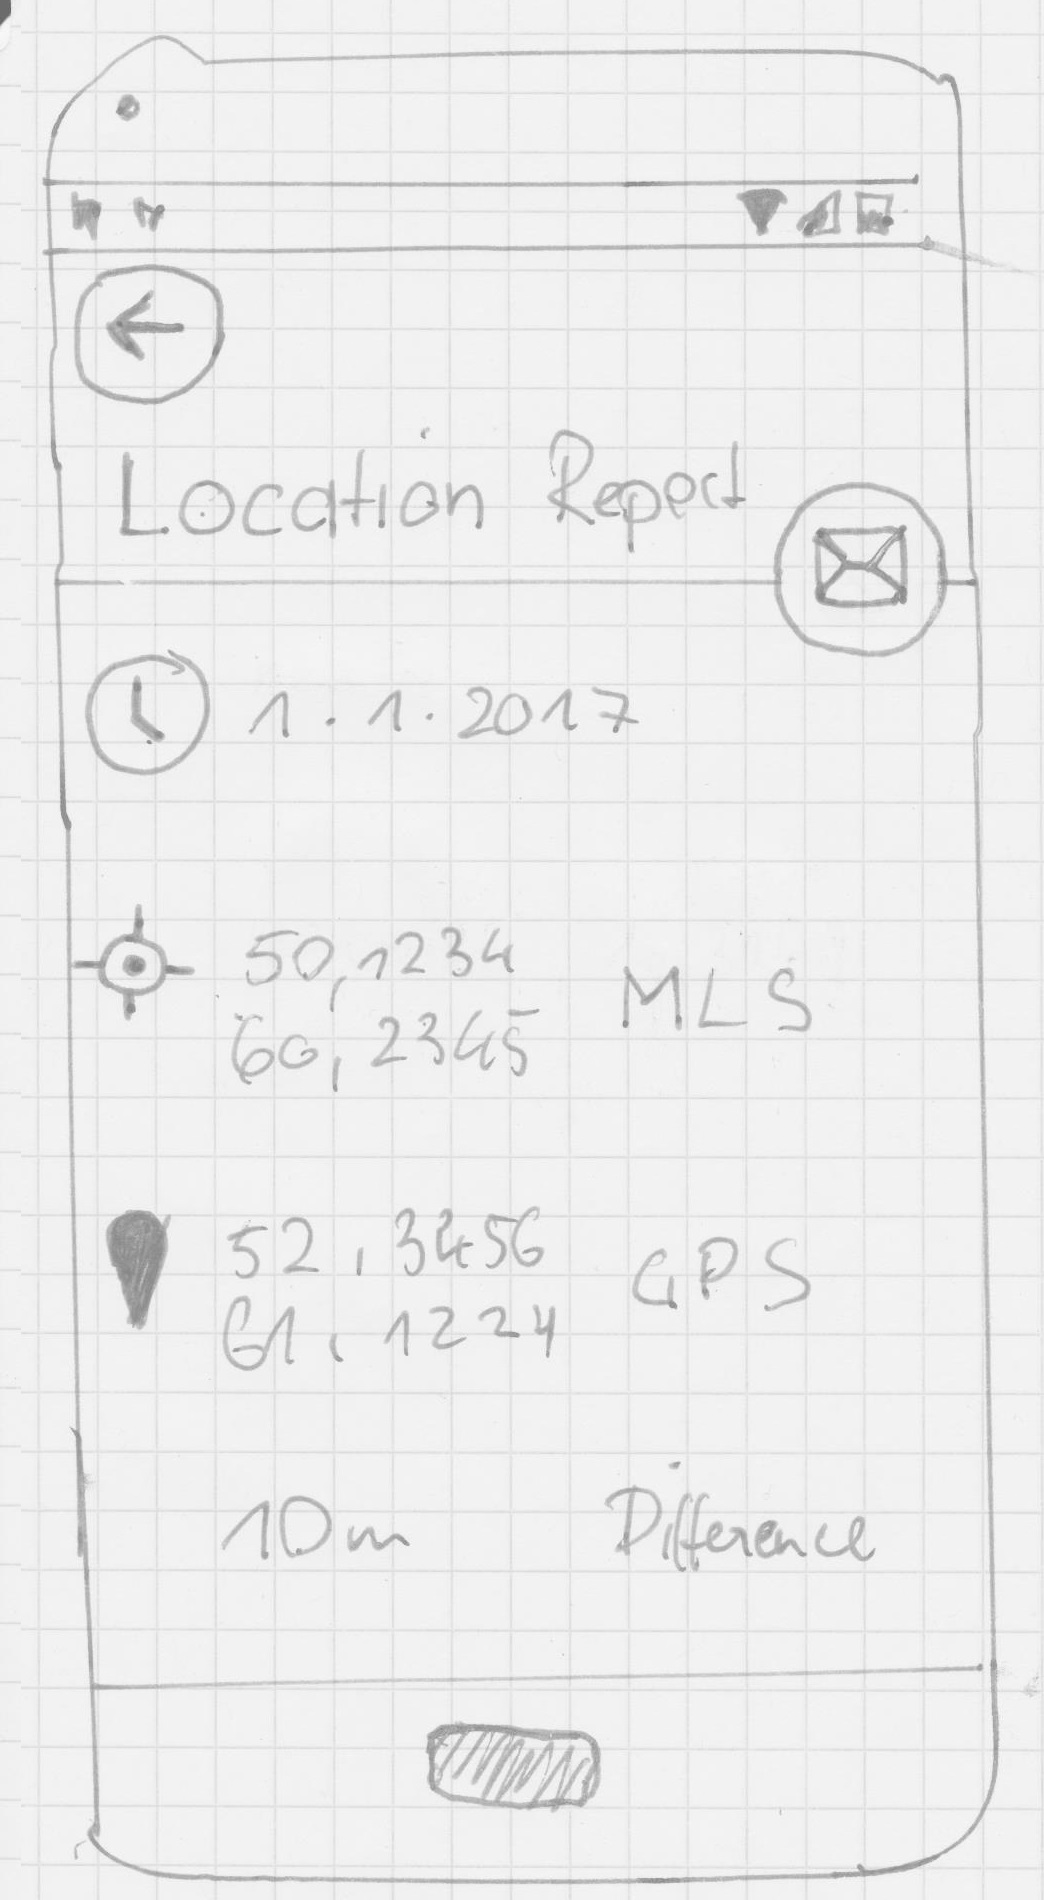 Location Report
1.1.2017
50,1234
MLS
60,2345
52,3456
GPS
61,1224
10m Difference